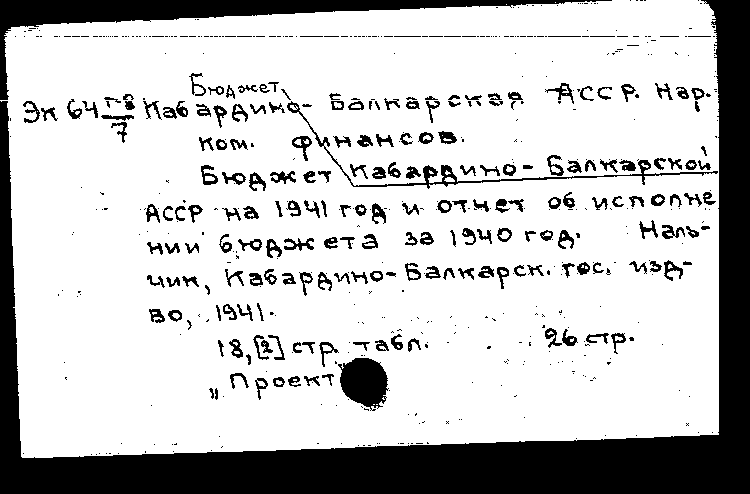 Бюджет
Эк 64 г-8/7 Кабардино-Балкарская АССР. Нар.
ком. финансов.
Бюджет Кабардино-Балкарской
АССР на 1941 год и отчет об исполне
нии бюджета за 1940 год. Наль-
чик, Кабардино-Балкарск. гос. изд-
во, 1941.
18, [2] стр. табл. 26 стр.
„Проект